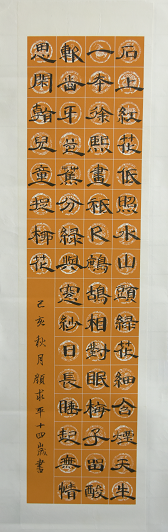 石上紅花低照水山頭綠花細含煙天生
一本徐熙畫祇欠鷓鴣相對眠梅子出酸
軟齒牙芭蕉分綠與窓紗日長睡起無情
思閑看兒童捉柳花
己亥秋月顧求平十四歲書